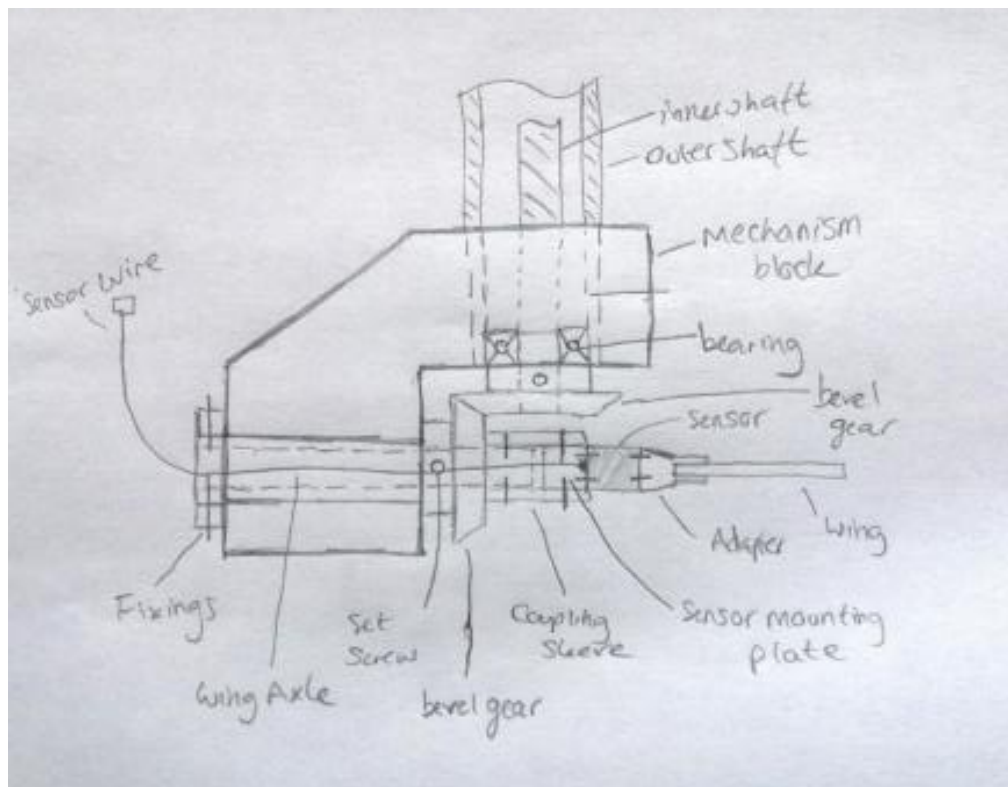 inner shaft
outer shaft
Mechanism
block
Sensor Wire
bearing
bevel
gear
Sensor
Wing
Adapter
Sensor mounting
plate
Coupling
Sleeve
Set
Screw
bevel gear
Wing Axle
Fixings